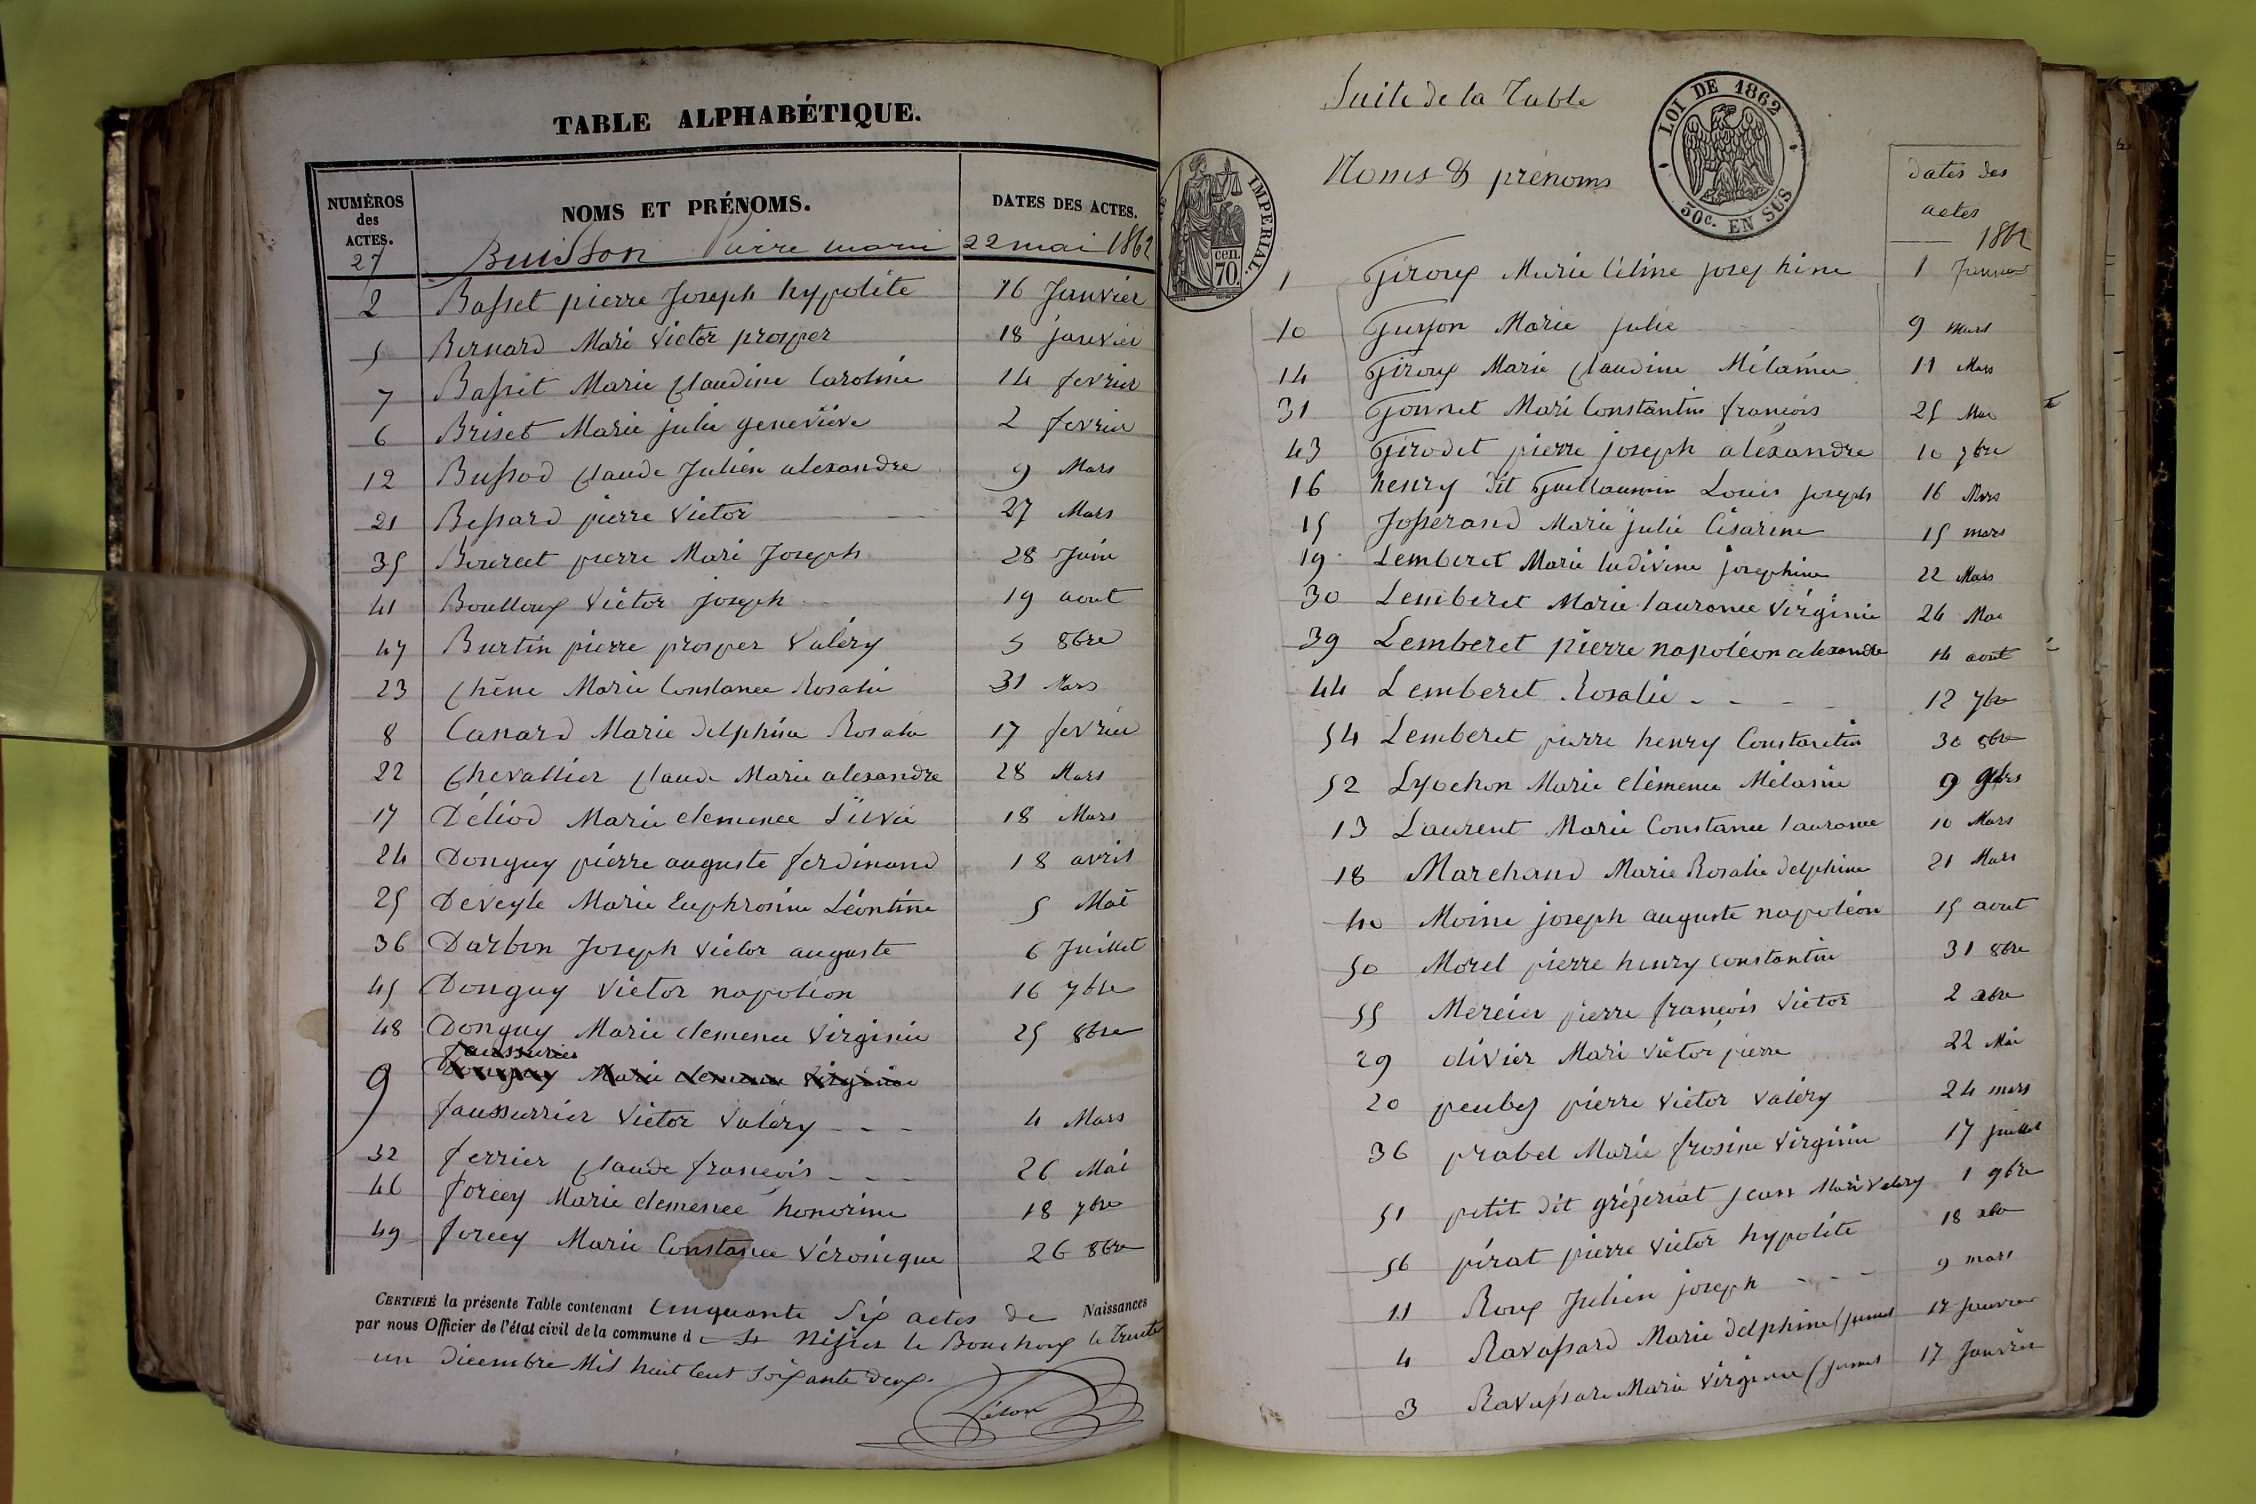 TABLE ALPHABÉTIQUE.
NUMÉROS des ACTES. NOMS ET PRÉNOMS. DATES DES ACTES.
27 Buisson Pierre marie 22 mai 1862
2 Basset pierre Joseph hypolite 16 Janvier
5 Bernard Marie Victor prosper 18 janvier
7 Basset Marie Claudine Caroline 14 fevrier
6 Briset Marie julie geneviève 2 fevrier
12 Bussod Claude Julien alexandre 9 Mars
21 Bessard pierre Victor 27 Mars
35 Bourcet pierre Marie Joseph 28 Juin
41 Boulloux Victor joseph 19 aout
47 Burtin pierre prosper Valéry 5 8bre
23 Chêne Marie Constance Rosalie 31 Mars
8 Canard Marie delphine Rosalie 17 fevrier
22 Chevallier Claude Marie alexandre 28 Mars
17 Déliod Marie clemence Silvie 18 Mars
24 Donguy pierre auguste ferdinand 18 avril
25 Deveyle Marie Euphrosine Léontine 5 Mai
36 Darbon Joseph Victor auguste 6 Juillet
45 Donguy Victor napoléon 16 7bre
48 Donguy Marie clemence Virginie 25 8bre
faussurier
9 Donguy Marie clemence Virginie
faussurrier Victor Valéry - - - 4 Mars
32 ferrier Claude françois - - - 26 Mai
46 forcey Marie clemence honorine 18 7bre
49 forcey Marie Constance Véronique 26 8bre
CERTIFIÉ la présente Table contenant Cinquante Six actes de Naissances
par nous Officier de l'état civil de la commune de St Nizier le Bouchoux le Trente
un Décembre Mil huit Cent Soixante deux.
Suite de la Table
LOI DE 1862
50c. EN SUS
IMPERIAL.
70 cen.
Noms & prénoms dates des actes
1862
1 Giroux Marie Céline josephine 1 Janvier
10 Guyon Marie julie 9 mars
14 Giroux Marie Claudine Mélanie 11 Mars
31 Gonnet Marie Constantin françois 25 Mai
43 Girodet pierre joseph aléxandre 10 7bre
16 henry dit Guillaumin Louis joseph 16 Mars
15 Josserand Marie julie Césarine 15 mars
19 Lemberet Marie ludivine josephine 22 Mars
30 Lemberet Marie laurence Virginie 24 Mai
39 Lemberet pierre napoléon alexandre 14 aout
44 Lemberet Rosalie - - - - 12 7bre
54 Lemberet pierre henry Constantin 30 8bre
52 Lyochon Marie clémence Mélanie 9 9bre
13 Laurent Marie Constance laurence 10 Mars
18 Marchand Marie Rosalie delphine 21 Mars
40 Moine joseph auguste napoléon 15 aout
50 Morel pierre henry constantin 31 8bre
55 Mercier pierre françois Victor 2 xbre
29 olivier Marie Victor pierre 22 Mai
20 peubez pierre Victor Valéry 24 mars
36 prabel Marie frosine Virginie 17 juillet
51 petit dit grézeriat jean Marie Valery 1 9bre
56 pirat pierre Victor hypolite 18 xbre
11 Roux Julien joseph - - - 9 mars
4 Ravassard Marie delphine (jumel 17 Janvier
3 Ravassard Marie Virginie (jumel 17 Janvier